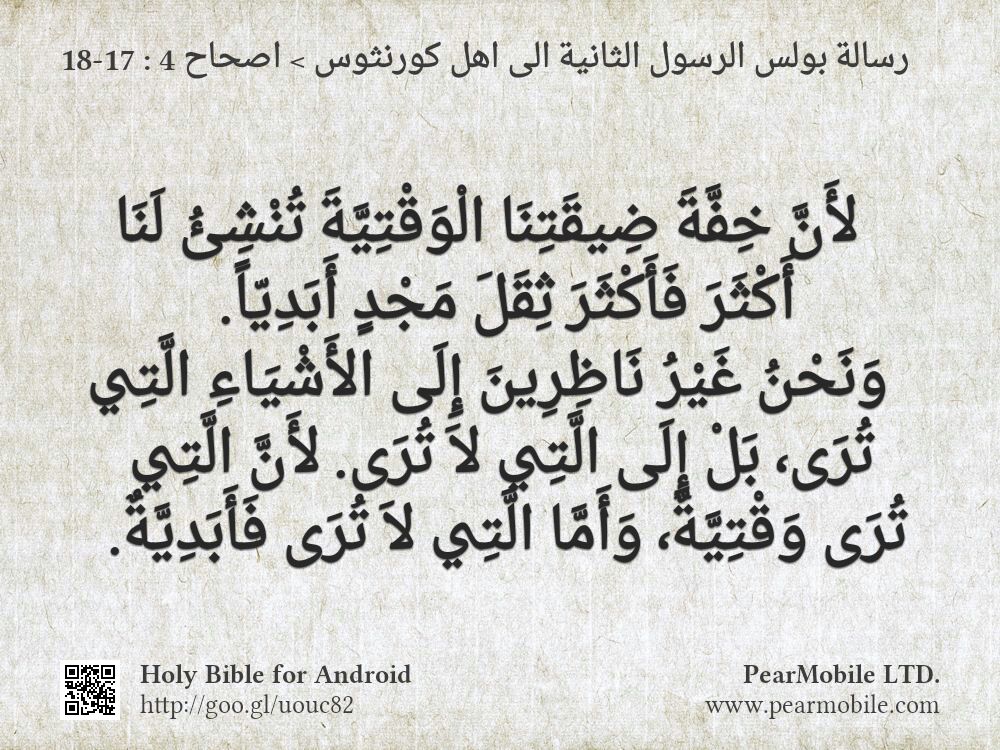 رسالة بولس الرسول الثانية الى اهل كورنثوس > اصحاح 4 : 17-18
لأَنَّ خِفَّةَ ضِيقَتِنَا الْوَقْتِيَّةَ تُنْشِئُ لَنَا
أَكْثَرَ فَأَكْثَرَ ثِقَلَ مَجْدٍ أَبَدِيّاً.
وَنَحْنُ غَيْرُ نَاظِرِينَ إِلَى الأَشْيَاءِ الَّتِي
تُرَى، بَلْ إِلَى الَّتِي لاَ تُرَى. لأَنَّ الَّتِي
تُرَى وَقْتِيَّةٌ، وَأَمَّا الَّتِي لاَ تُرَى فَأَبَدِيَّةٌ.
Holy Bible for Android
http://goo.gl/uouc82
PearMobile LTD.
www.pearmobile.com